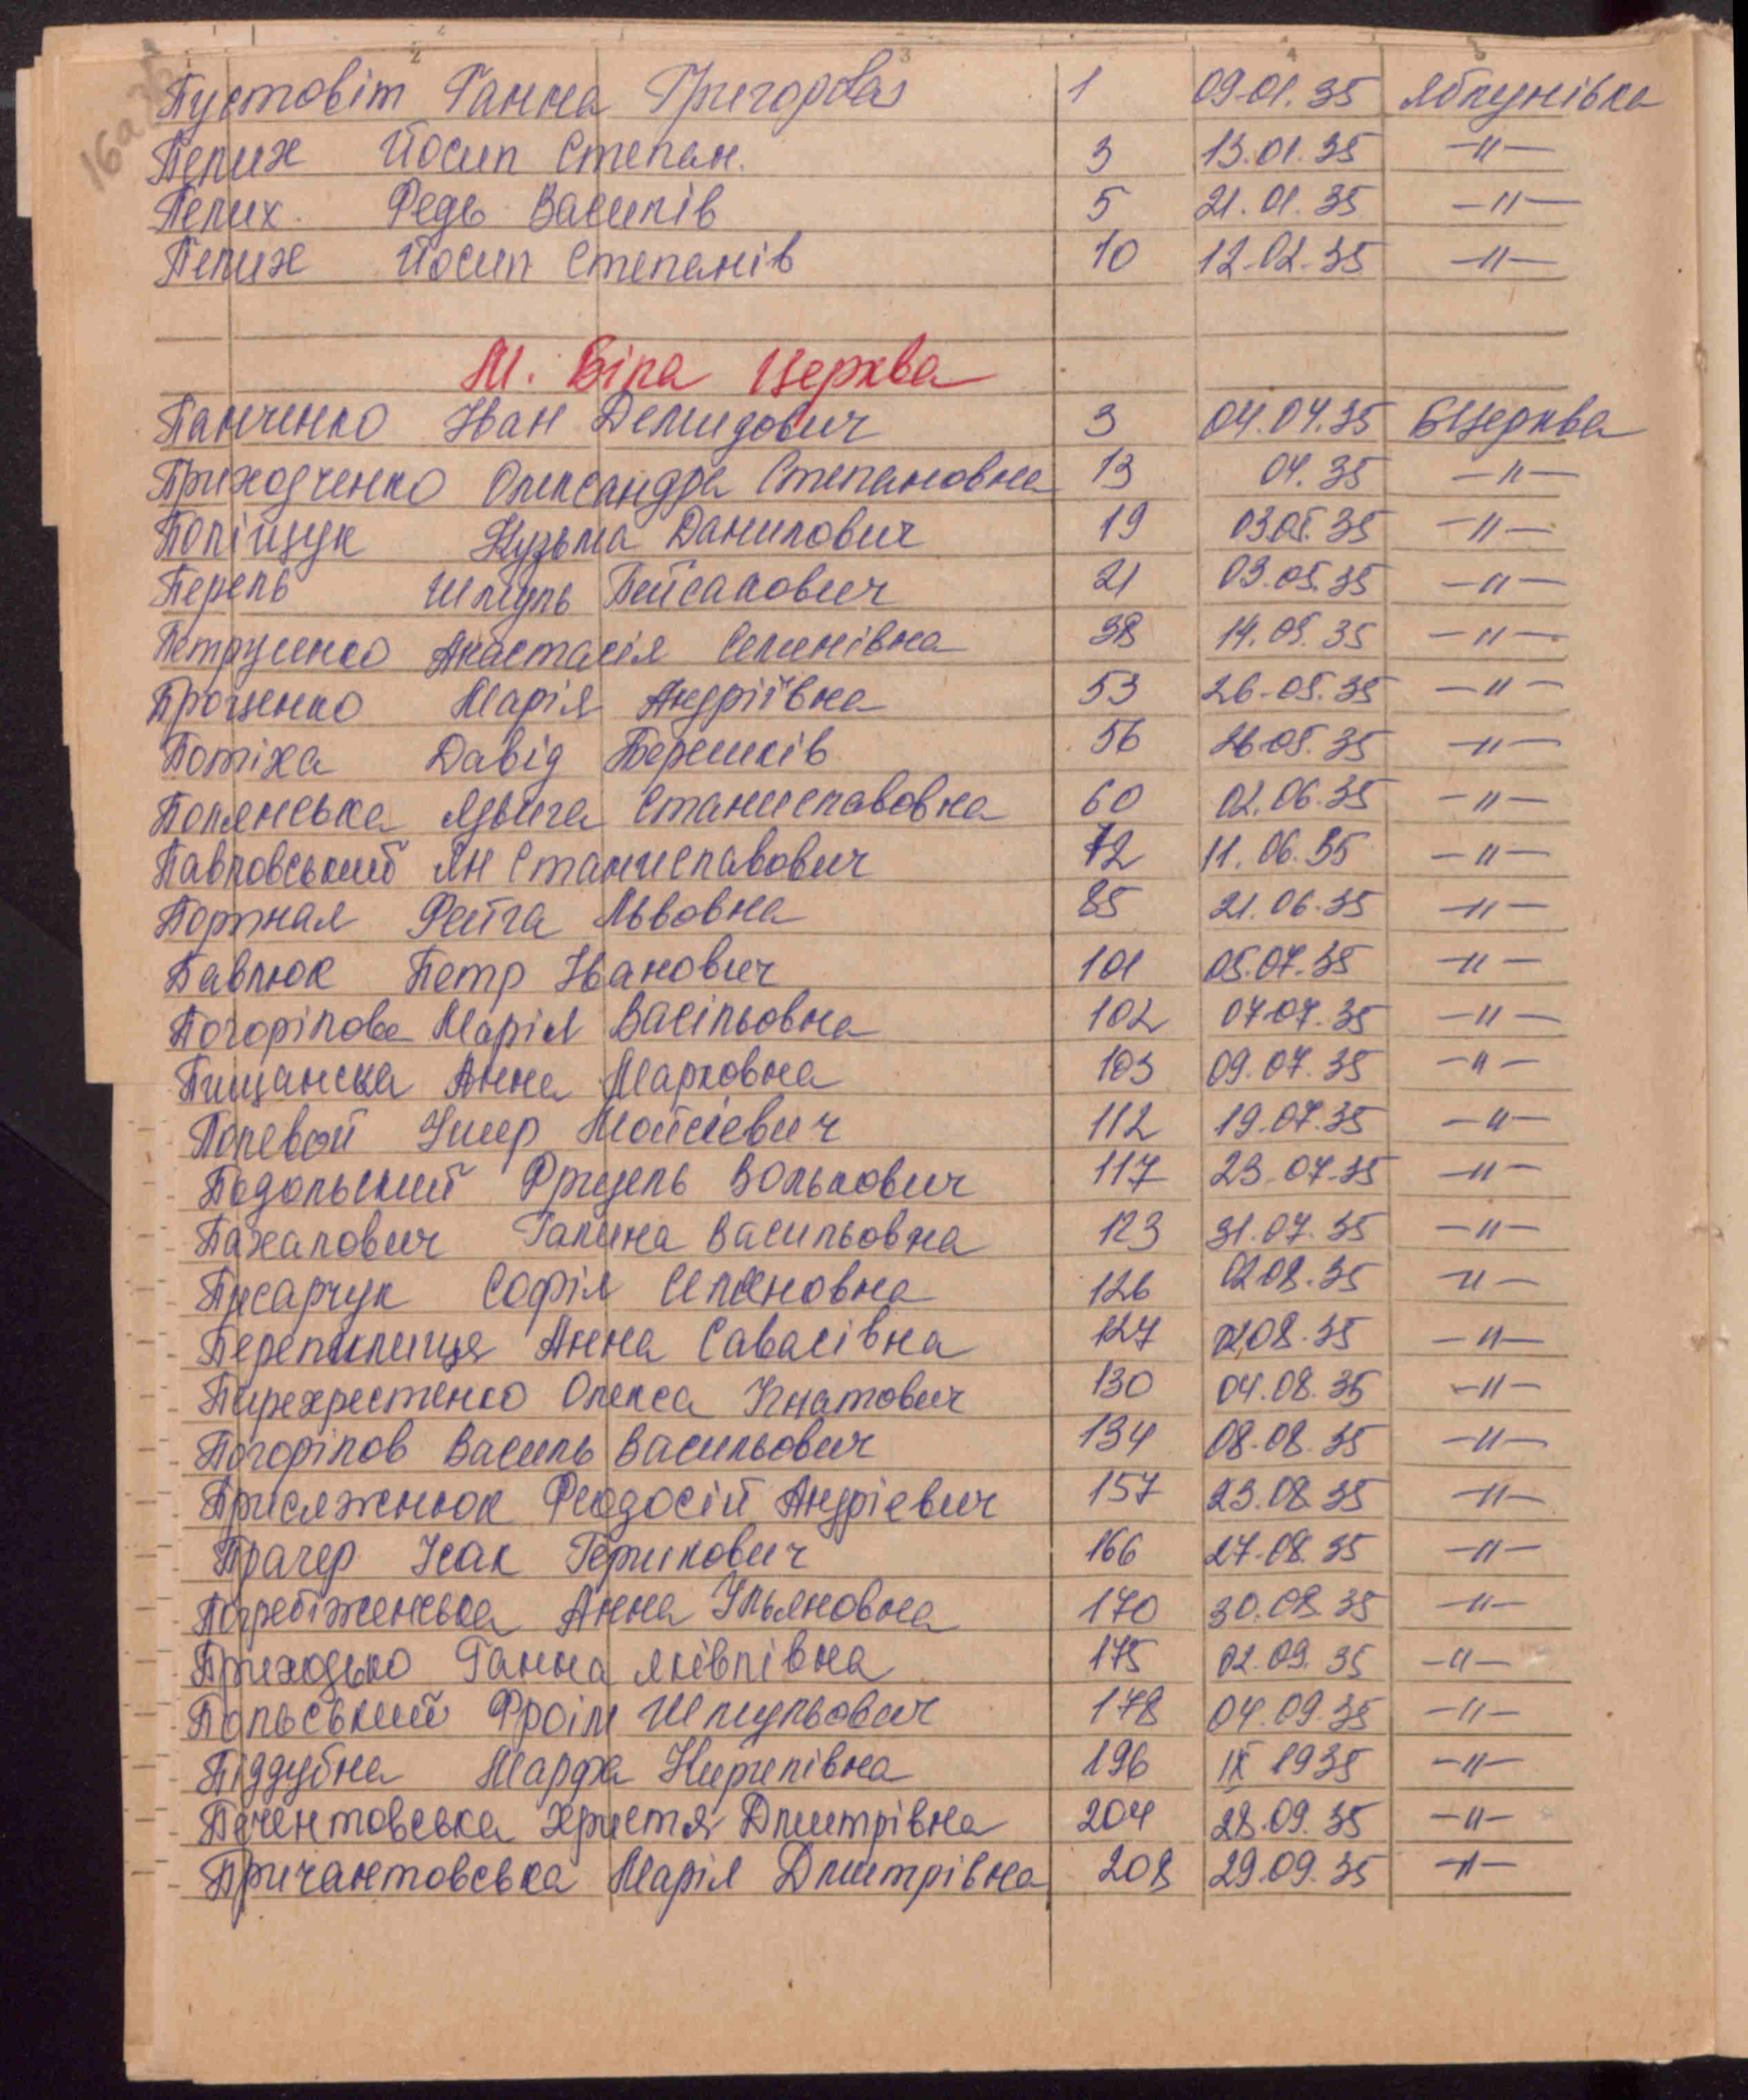 Пустовіт Ганна Григоровас 1 09.01.35 Яблунівка
Пелих Йосип Степан. 3 13.01.35 -"-
Пелих. Федь Василів 5 21.01.35 -"-
Пелих Йосип Степанів 10 12.02.35 -"-
М. Біла Церква
Панченко Іван Демидович 3 04.04.35 БЦерква
Приходченко Олександра Степановна 13 04.35 -"-
Поліщук Кузьма Данилович 19 03.05.35 -"-
Перель Шмуль Пейсахович 21 03.05.35 -"-
Петрусенко Анастасія Семенівна 38 14.05.35 -"-
Проценко Марія Андріївна 53 26.05.35 -"-
Потіха Давід Берешків 56 26.05.35 -"-
Полянська Ядвига Станиславовна 60 02.06.35 -"-
Павловський Ян Станиславович 72 11.06.35 -"-
Портная Фейга Львовна 85 21.06.35 -"-
Павлюк Петр Іванович 101 05.07.35 -"-
Погорілова Марія Васільовна 102 07.07.35 -"-
Пищанска Анна Марковна 103 09.07.35 -"-
Полевой Ушер Мойсієвич 112 19.07.35 -"-
Подольский Фридель Волькович 117 23.07.35 -"-
Пахалович Галина Васильовна 123 31.07.35 -"-
Писарчук Софія 126 02.08.35 -"-
Перепилиця Анна Савасівна 127 02.08.35 -"-
Пирехрестенко Олекса Ігнатович 130 04.08.35 -"-
Погорілов Василь Васильович 134 08.08.35 -"-
Присяжнюк Феодосій Андрієвич 157 23.08.35 -"-
Прагер Ісак Гершкович 166 27.08.35 -"-
Погребіженська Анна Ульяновна 170 30.08.35 -"-
Приходько Ганна Яківлівна 175 02.09.35 -"-
Польський Фроїм Шмульович 178 04.09.35 -"-
Піддубна Марфа Кирилівна 196 IX 1935 -"-
Печентовська Христя Дмитрівна 204 28.09.35 -"-
Причантовська Марія Дмитрівна 208 29.09.35 -"-